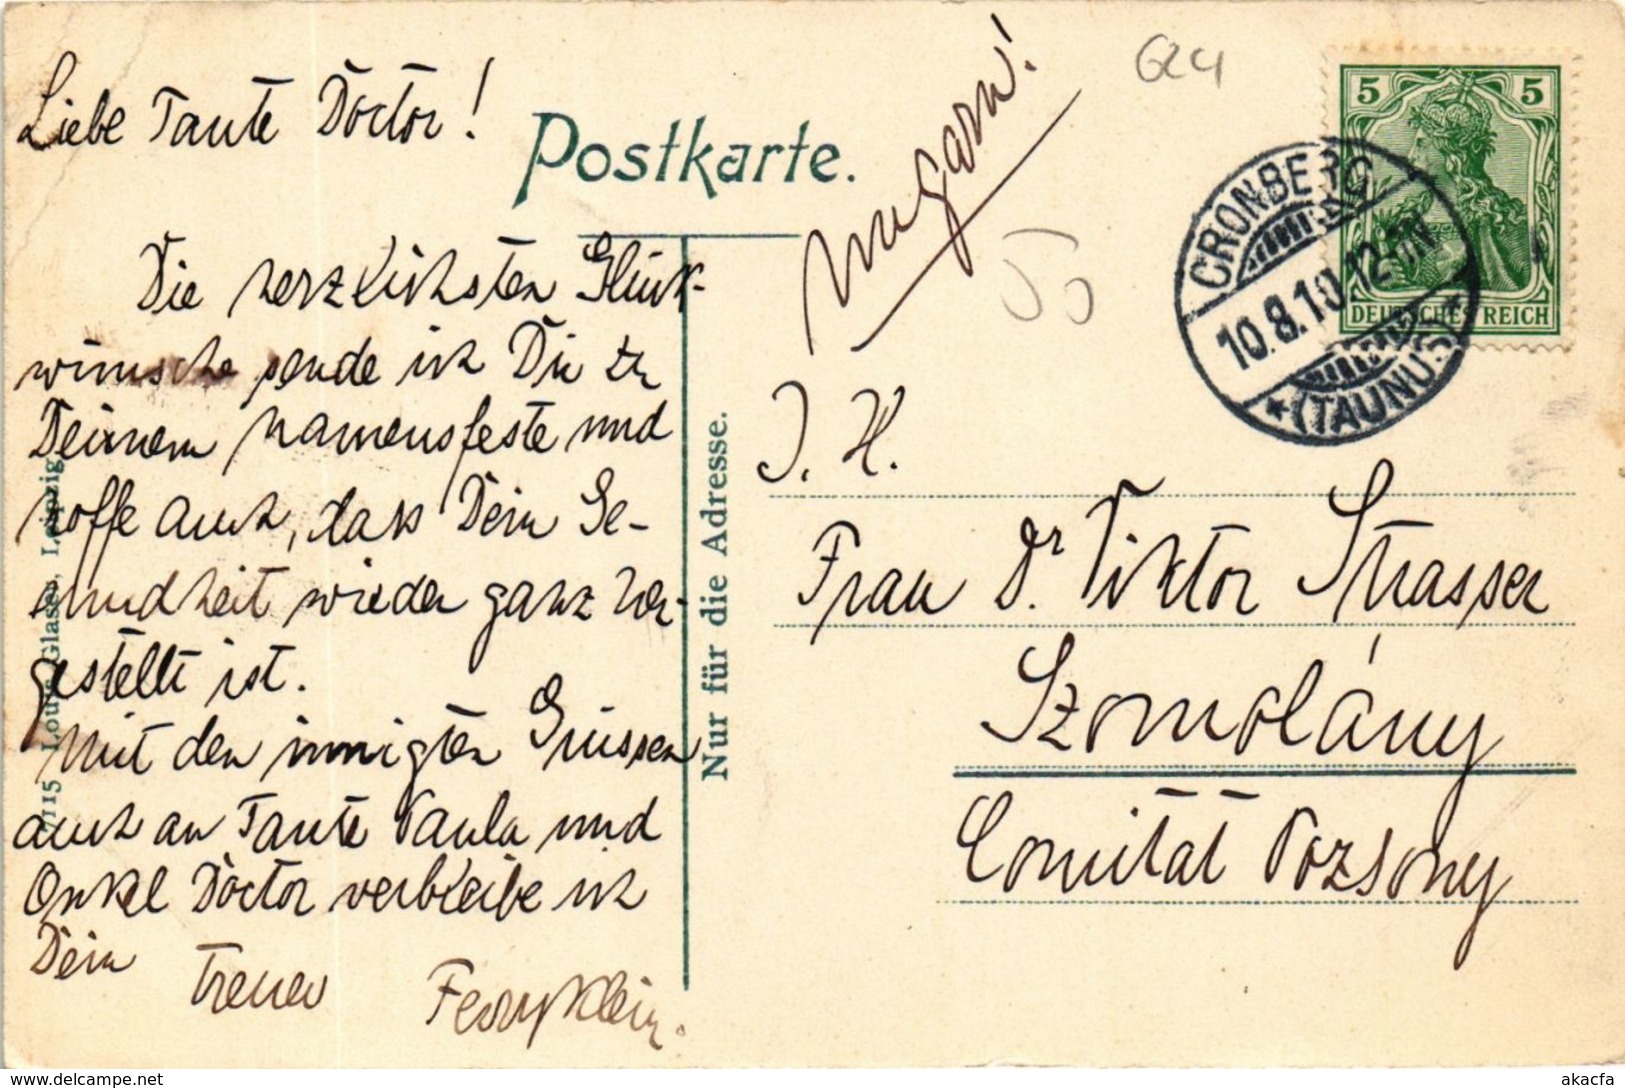 Liebe Tante Doctor!
Die herzlichsten Glück-
wünsche sende ich Dir zu
Deinem Namensfeste und
hoffe auch, dass Dein Ge-
sundheit wieder ganz her-
gestellt ist.
Mit den innigsten Grüssen
auch an Tante Paula und
Onkel Doctor verbleibe ich
Dein
treuer
Ferry Klein.
Postkarte.
Ungarn!
624
50
5 5
DEUTSCHES REICH
CRONBERG
10.8.10.12-1N
* (TAUNUS) *
Nur für die Adresse.
115 Louis Glaser, Leipzig
I. H.
Frau Dr. Viktor Strasser
Szomolány
Comitat Pozsony
akacfa